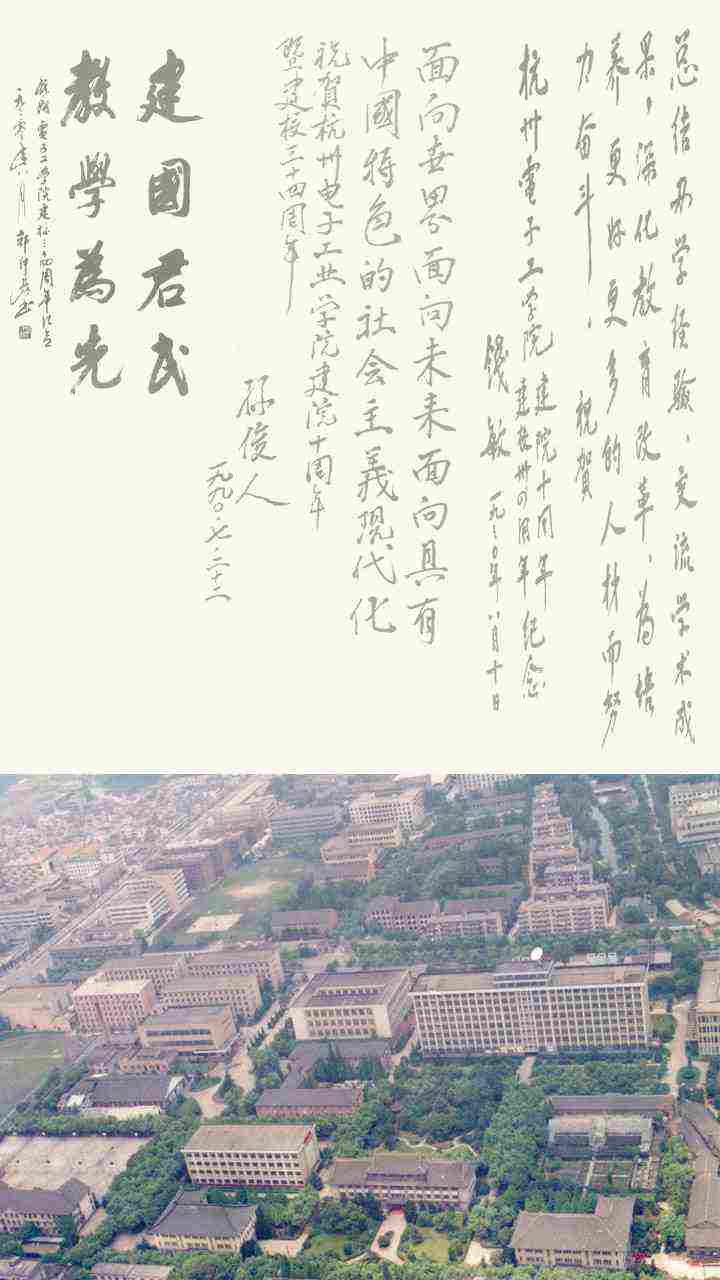 总结办学经验，交流学术成
果，深化教育改革，为培
养更好更多的人材而努
力奋斗。祝賀
杭州電子工学院建院十周年
建校卅四周年纪念
钱敏 一九九〇年八月十日
面向世界面向未来面向具有
中國特色的社会主義現代化
祝賀杭州电子工业学院建院十周年
暨建校三十四周年
孙俊人
一九九〇.七.二十二
建國君民
教學為先
杭州電子工学院建校三十四周年纪念
一九九零年八月 郭仲选书